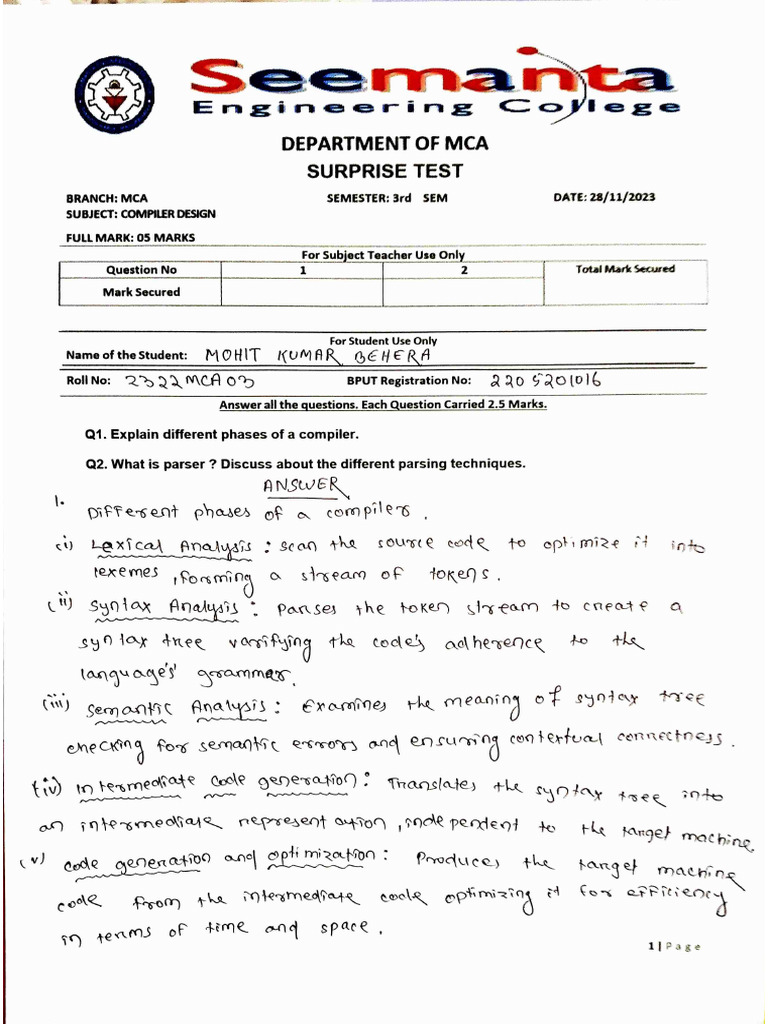 Seemanta
Engineering College
DEPARTMENT OF MCA
SURPRISE TEST
BRANCH: MCA SEMESTER: 3rd SEM DATE: 28/11/2023
SUBJECT: COMPILER DESIGN
FULL MARK: 05 MARKS
For Subject Teacher Use Only
Question No 1 2 Total Mark Secured
Mark Secured
For Student Use Only
Name of the Student: MOHIT KUMAR BEHERA
Roll No: 2322MCA03 BPUT Registration No: 2205201016
Answer all the questions. Each Question Carried 2.5 Marks.
Q1. Explain different phases of a compiler.
Q2. What is parser ? Discuss about the different parsing techniques.
ANSWER
1. Different phases of a compiler.
(i) Lexical Analysis : scan the source code to optimize it into
lexemes , forming a stream of tokens.
(ii) Syntax Analysis : Parses the token stream to create a
syntax tree varifying the code's adherence to the
language's' grammar.
(iii) Semantic Analysis : Examines the meaning of syntax tree
checking for semantic errors and ensuring contextual connectness.
(iv) Intermediate code generation : Translates the syntax tree into
an intermediate representation , independent to the target machine.
(v) code generation and optimization : Produces the target machine
code from the intermediate code optimizing it for efficiency
in terms of time and space.
1 | Page